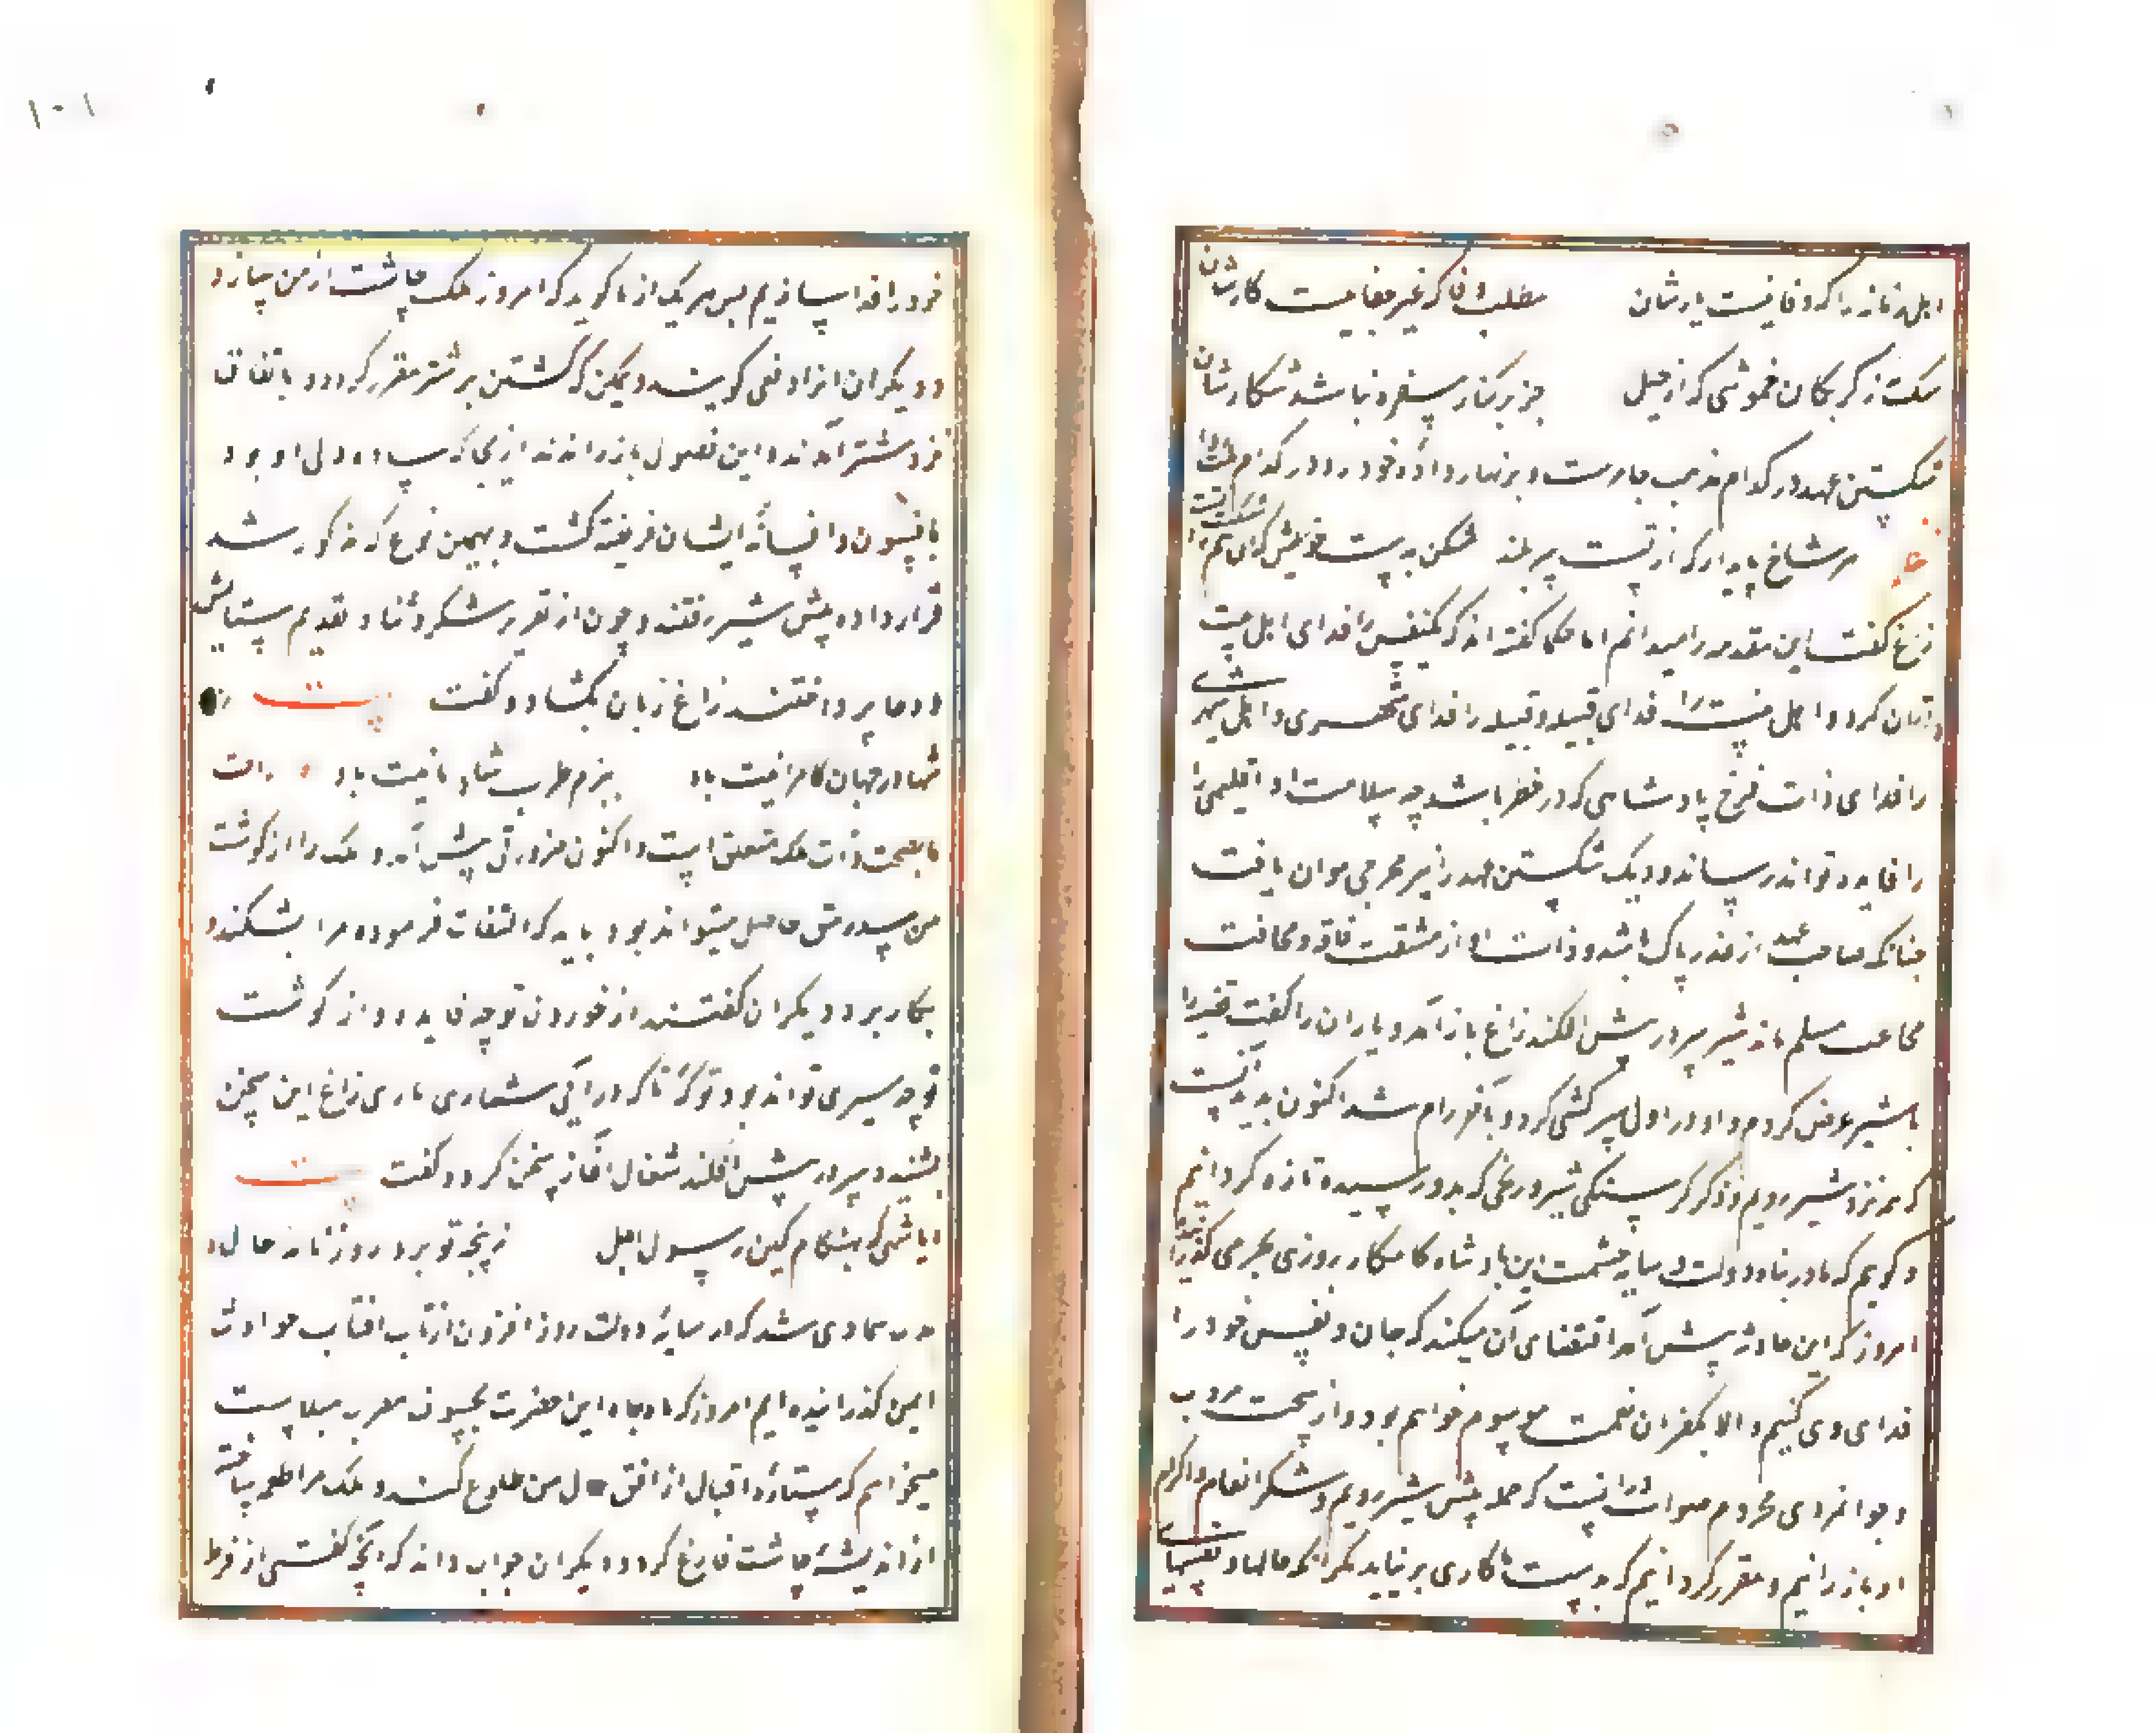 اهل زمانه را که وفا نیست یارشان مطلب وفا که غیر جفا نیست کارشان
مکث ز گربکان خموشی که از حیل جز بر کنار سفره نباشد شکارشان
شکستن عهد در کدام مذهب جایزست و بزنهار داده خود را در کدام
هر شاخ پایدار که از تست سربلند مشکن بدست خویش که آن هم شکست تست
زاغ گفت این مقدمه را میدانم اما حکما گفته اند که یکنفس را فدای اهل بیت
توان کرد و اهل بیت را فدای قبیله و قبیله را فدای شهری و اهل شهر
را فدای ذات فرخ پادشاهی که در خطر باشد چه سلامت او اقلیمی
را فایده تواند رسانید و دیگر شکستن عهد را نیز مخرجی توان یافت
چنانکه صاحب عهد از غدر پاک باشد و ذات او از مشقت فاقه و مخافت
مجاعت مسلم ماند شیر سر در پیش افکند زاغ باز آمد و یاران را گفت قضیه را
با شیر عرض کردم و او در اول سرکشی کرد و بآخر رام شد اکنون تدبیر آنست
که همه نزد شیر رویم و ذکر گرسنگی شیر و رنجی که بدو رسیده تازه گردانیم
و گوییم که ما در پناه دولت و سایه حشمت این پادشاه کامکار روزی بخرمی گذرانیدیم
امروز که این حادثه پیش آمد اقتضای آن میکند که جان و نفس خود را
فدای وی کنیم و الا بکفران نعمت موسوم خواهیم بود و از سمت مروت
و جوانمردی محروم صواب آنست که جمله پیش شیر رویم و شکر انعام و اکرام
او باز رانیم و مقرر گردانیم که بدست ما کاری بر نیاید مگر آنکه جانها و نفسهای
خود را فدا سازیم پس هر یک از ما گوید که امروز ملک چاشت از من سازد
و دیگران آنرا دفعی گویند و ممکن که کشتن بر شتر مقرر گردد باتفاق
نزد شتر آمدند و این فصول باز راندند از بس که ساده دلی او بود
بافسون و افسانه ایشان فریفته گشت و بهمین نوع که مذکور شد
قرار داده پیش شیر رفتند و چون از تقریر شکر و ثنا و تقدیم ستایش
و دعا پرداختند زاغ زبان بگشاد و گفت بیت
شها در جهان کامرانیت باد ببزم طرب شادمانیت باد راحت
ما بصحت ذات ملک متعلق است و اکنون ضرورتی پیش آمده و ملک را از گوشت
من سد رمقی حاصل میتواند بود باید که التفات فرموده مرا بشکند و
بکار برد دیگران گفتند از خوردن تو چه فایده و از گوشت
تو چه سیری تواند بود زاغ این سخن
بشنید و سر در پیش افکند شغال آغاز سخن کرد و گفت بیت
ایا شهی که بهنگام کین رسول اجل ز پنجه تو برد روزنامه حال
مدت متمادی شد که در سایه دولت روز افزون از تاب آفتاب حوادث
ایمن گذرانیده ایم امروز که ماه جاه این حضرت بخسوف
میخواهم که ستاره اقبال از افق حال من طلوع کند و ملک مرا طعمه ساخته
از اندیشه چاشت فارغ گردد دیگران جواب دادند که آنچه گفتی از فرط
۱۰۱